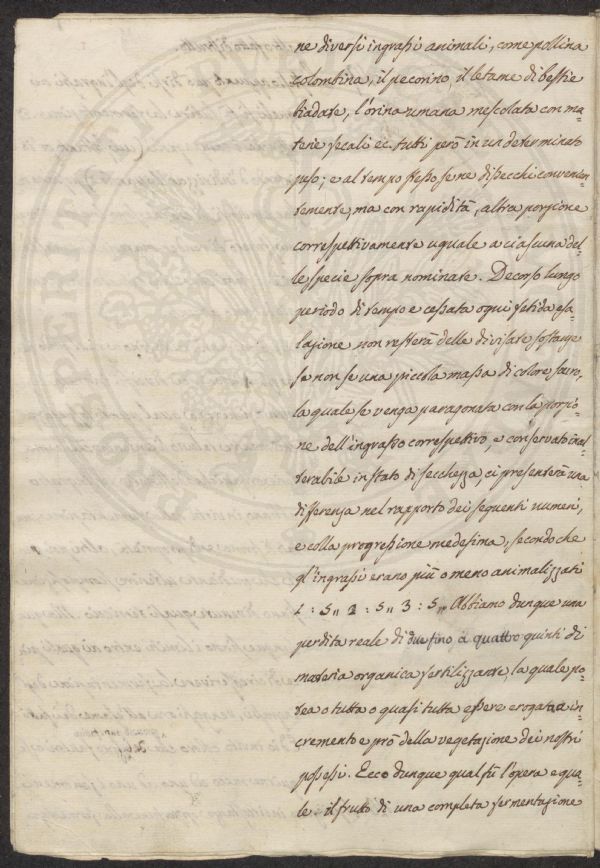 ne diversi ingrassi animali, come pollina
colombina, il pecorino, il letame di bestie
biadate, l'orina umana mescolata con ma=
terie fecali ec. tutti però in un determinato
peso; e al tempo stesso se ne disecchi convenien=
temente, ma con rapidità, altra porzione
correspettivamente uguale a ciascuna del=
le specie sopra nominate. Decorso lungo
periodo di tempo e cessata ogni fetida esa=
lazione non resterà delle divisate sostanze
se non se una piccola massa di colore scuro,
la quale se venga paragonata con la porzio=
ne dell'ingrasso correspettivo, e conservato inal=
terabile in stato di secchezza, ci presenterà una
differenza nel rapporto dei seguenti numeri,
e colla progressione medesima, secondo che
gl'ingrassi erano più o meno animalizzati
1 : 5 ,, 2 : 5 ,, 3 : 5 ,, Abbiamo dunque una
perdita reale di due fino a quattro quinti di
materia organica fertilizzante, la quale po=
tea o tutta o quasi tutta essere erogata a in=
cremento e prò della vegetazione dei nostri
possessi. Ecco dunque qual fù l'opera e qua=
le il frutto di una completa fermentazione